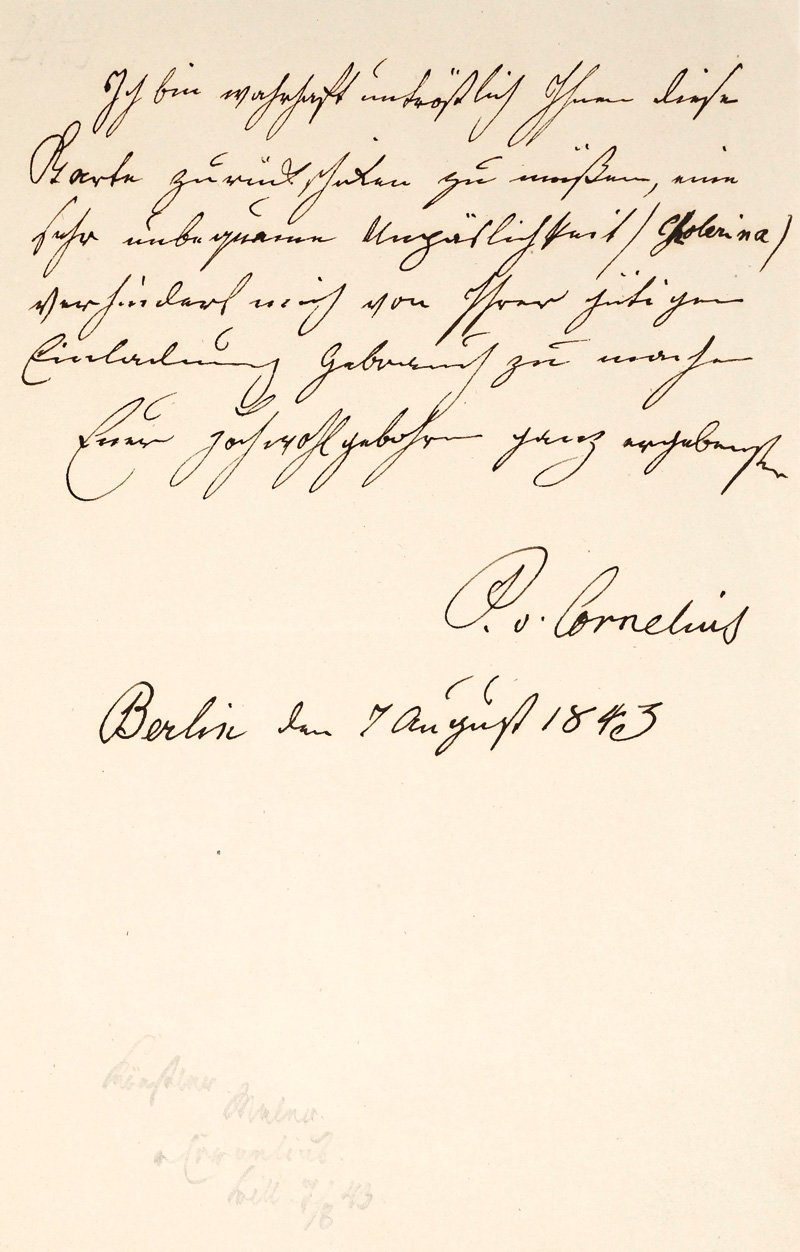 Ich bin wahrhaft untröstlich Ihnen diese
Karte zurück schicken zu müßen, eine
sehr unbequeme Unpäslichkeit (Cholerina)
verhindert mich von Ihrer gütigen
Einladung Gebrauch zu machen
Euer Hochwohlgebohren ganz ergebenster
P. v. Cornelius
Berlin den 7 August 1843
Künstler
Maler
Cornelius
7/8 43